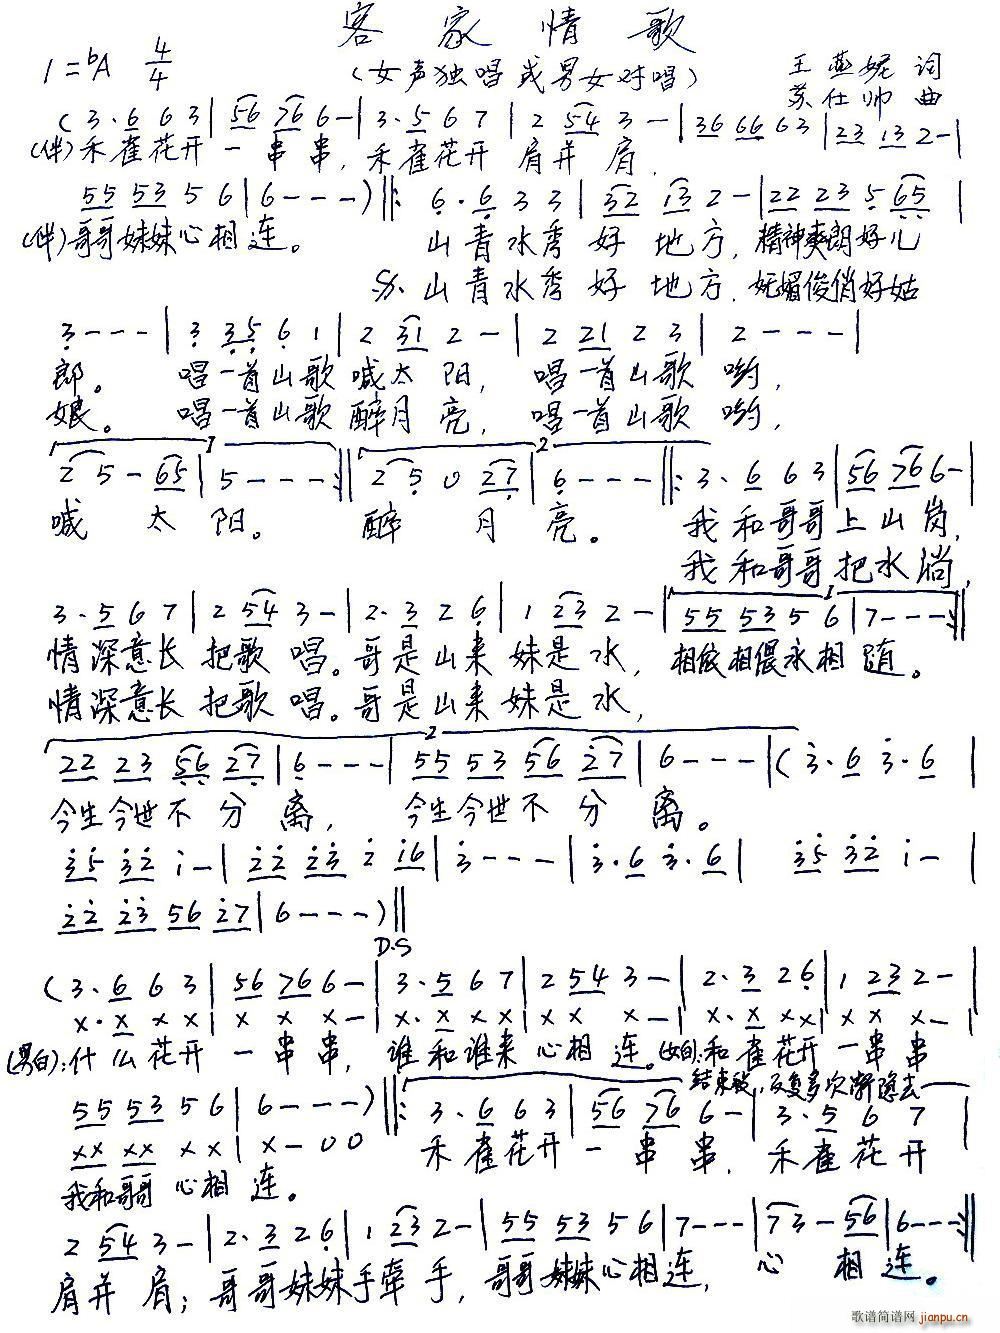 客家情歌
1=bA 4/4
（女声独唱或男女对唱）
王燕妮 词
苏仕帅 曲
(3·6 6 3|56 76 6-|3·5 6 7|2 54 3-|36 66 63|23 13 2-|
(伴)禾雀花开一串串，禾雀花开肩并肩，
55 53 5 6|6---)‖: 6·6 3 3|32 13 2-|22 23 5 65|
(伴)哥哥妹妹心相连。 山青水秀好地方，精神爽朗好儿
山青水秀好地方，妩媚俊俏好姑
3---|3 35 6 1|2 31 2-|2 21 2 3|2---|
郎。 唱一首山歌喊太阳， 唱一首山歌哟，
娘。 唱一首山歌醉月亮， 唱一首山歌哟，
1 2
2 5-65|5---:‖2 5 0 27|6---‖: 3·6 6 3|56 76 6-|
喊太阳。 醉月亮。 我和哥哥上山岗，
我和哥哥把水淌，
3·5 6 7|2 54 3-|2·3 2 6|1 23 2-|55 53 5 6|7---:‖
情深意长把歌唱。哥是山来妹是水，相依相偎永相随。
情深意长把歌唱。哥是山来妹是水，
2
22 23 56 27|6---|55 53 56 27|6---|(3·6 3·6|
今生今世不分离， 今生今世不分离。
35 32 1-|22 23 2 16|3---|3·6 3·6| 35 32 1-|
22 23 56 27|6---)‖
D.S
(3·6 6 3|56 76 6-|3·5 6 7|2 54 3-|2·3 2 6|1 23 2-|
x·x x x|x x x-|x·x x x|x x x-|x·x x x|x x x-|
(男白):什么花开一串串，谁和谁来心相连。(女白):禾雀花开一串串
结束段，反复多次渐隐去
55 53 5 6|6---)‖: 3·6 6 3|56 76 6-|3·5 6 7|
xx xx x x|x-00
我和哥哥心相连。 禾雀花开一串串，禾雀花开
2 54 3-|2·3 2 6|1 23 2-|55 53 5 6|7---|7 3-56|6---:‖
肩并肩；哥哥妹妹手牵手，哥哥妹妹心相连，心相连。
歌谱简谱网 jianpu.cn